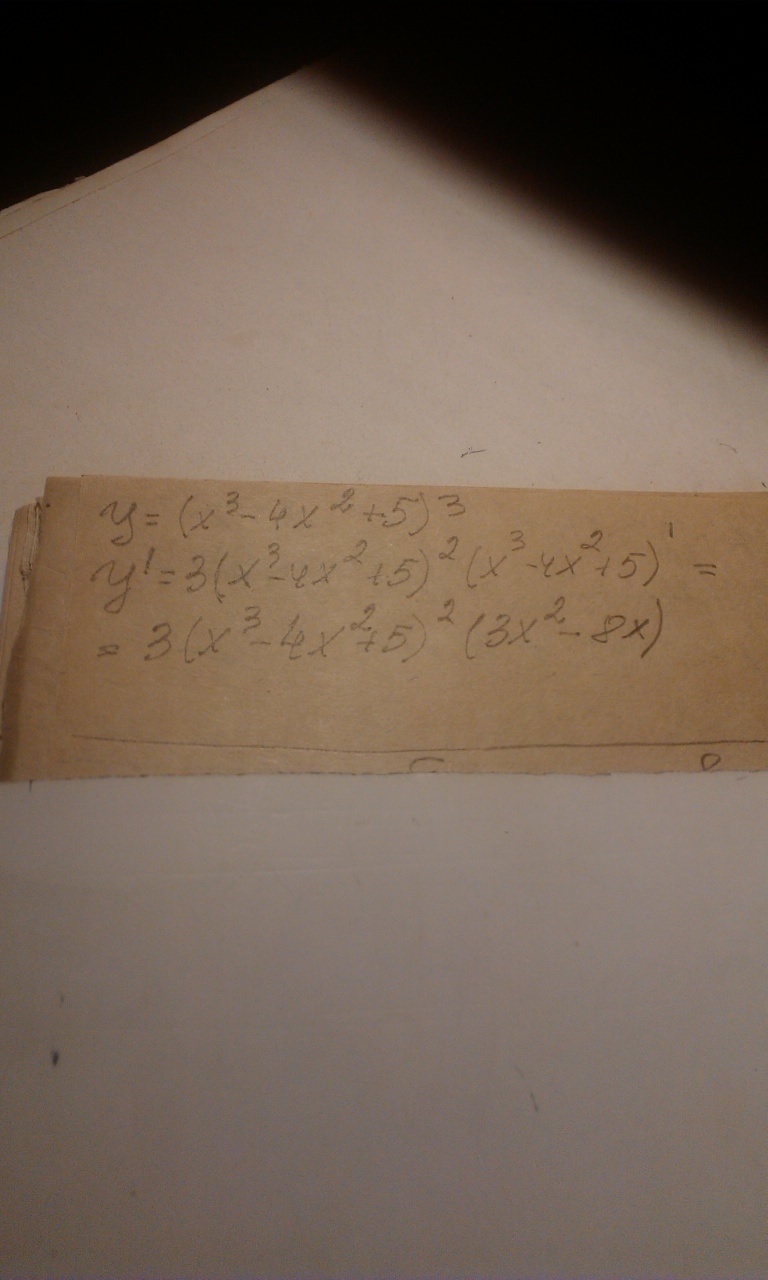 y = (x³ - 4x² + 5)³
y' = 3(x³ - 4x² + 5)² (x³ - 4x² + 5)' =
= 3(x³ - 4x² + 5)² (3x² - 8x)